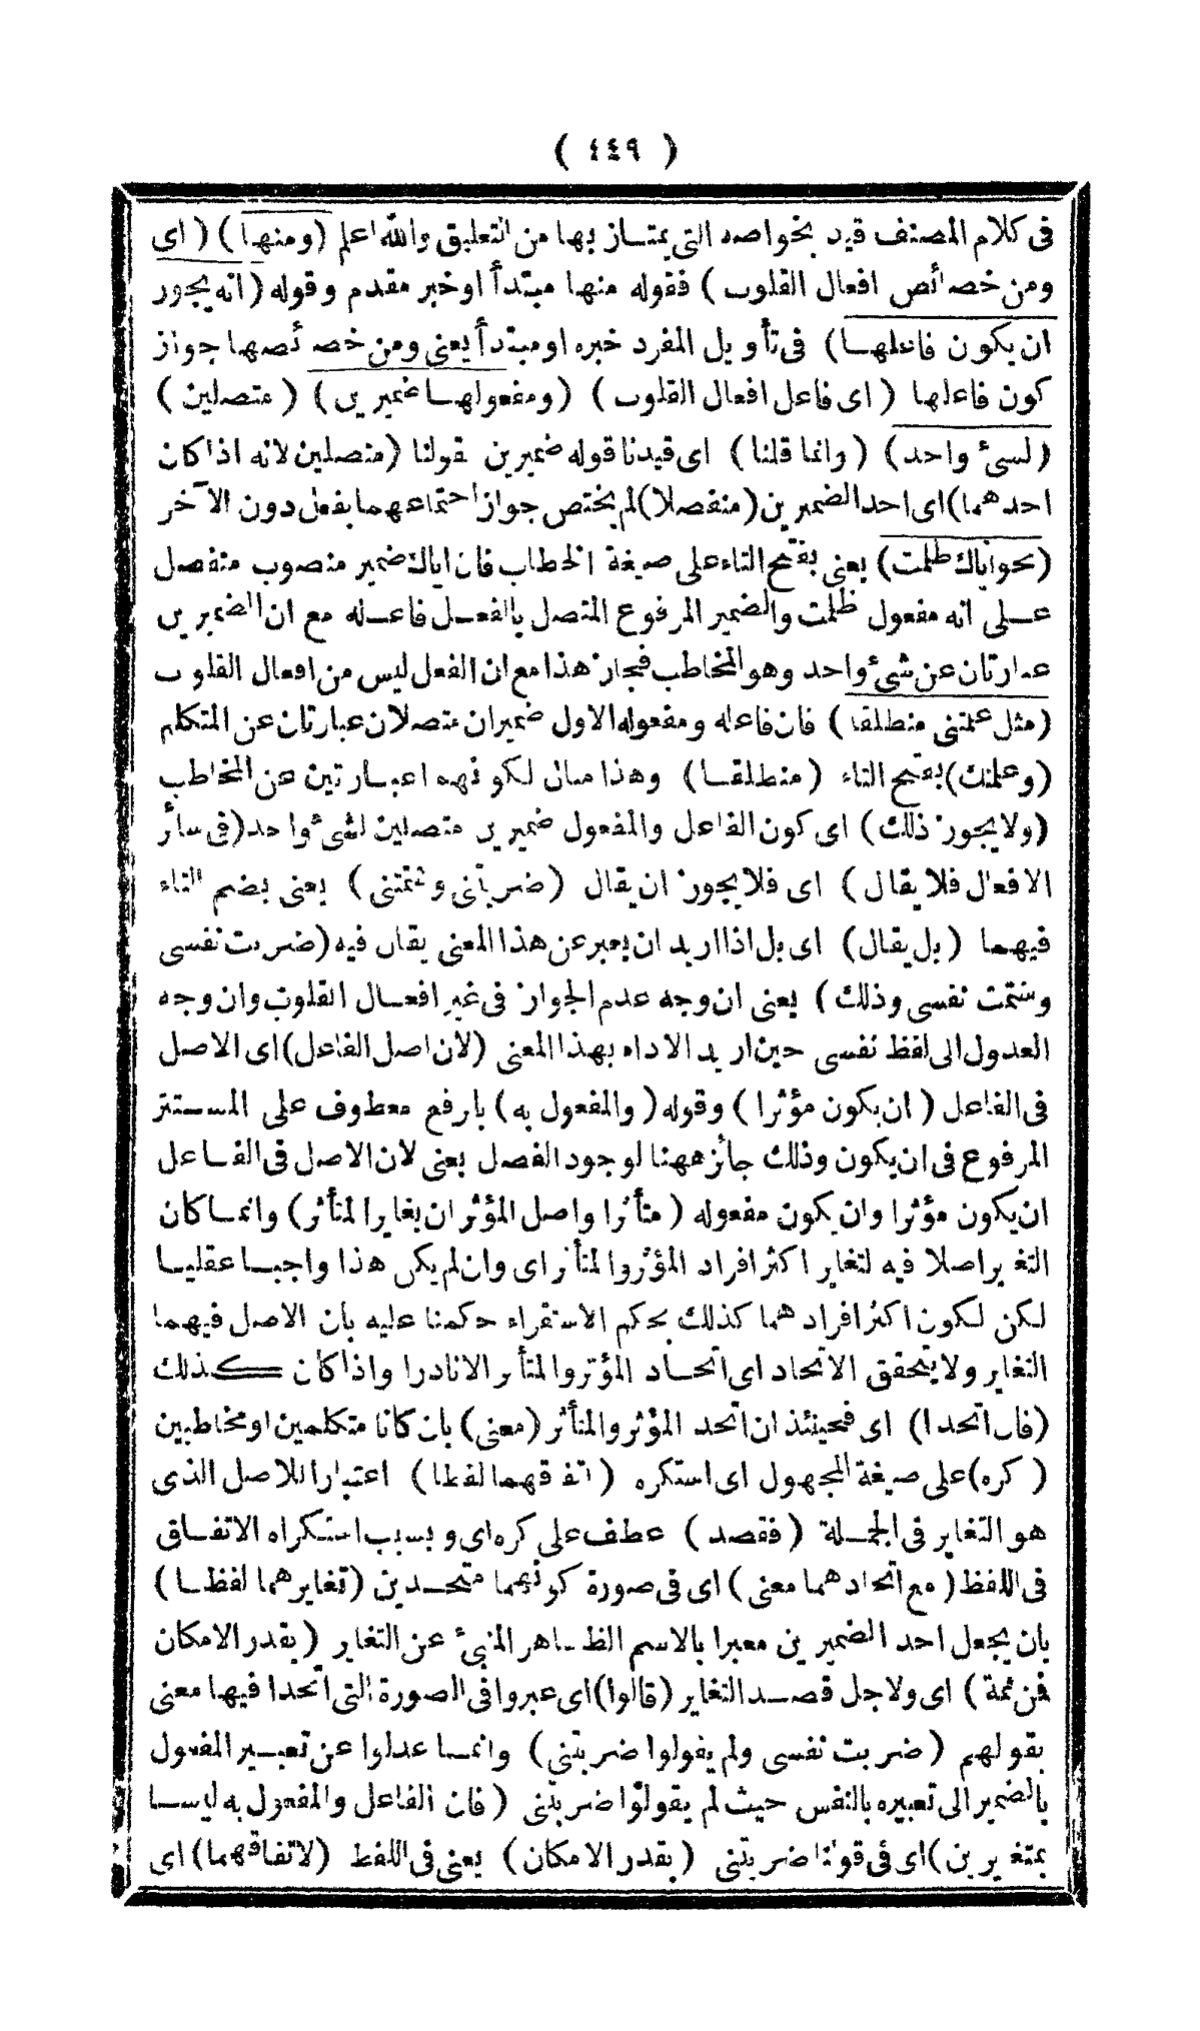 ( ٤٤٩ )
فى كلام المصنف قيد بخواصه التى يمتــاز بها من التعليق والله اعلم (ومنها) ( اى
ومن خصائص افعال القلوب ) فقوله منها مبتدأ اوخبر مقدم وقوله (انه يجوز
ان يكون فاعلهــا) فى تأويل المفرد خبره اومبتدأ يعنى ومن خصائصها جواز
كون فاعلها ( اى فاعل افعال القلوب ) (ومفعولهــا ضميرين) ( متصلين )
(لشئ واحد) (وانما قلنا) اى قيدنا قوله ضميرين بقولنا (متصلين لانه اذا كان
احدهما) اى احد الضميرين (منفصلا) لم يختص جواز اجتماعهما بفعل دون الآخر
(نحو اياك ظلمت) يعنى بفتح التاء على صيغة الخطاب فان اياك ضمير منصوب منفصل
عــلى انه مفعول ظلمت والضمير المرفوع المتصل بالفعــل فاعــله مع ان الضميرين
عبارتان عن شئ واحد وهو المخاطب فجاز هذا مع ان الفعل ليس من افعال القلوب
(مثل علمتنى منطلقا) فان فاعله ومفعوله الاول ضميران متصلان عبارتان عن المتكلم
(وعلمتك) بفتح التاء (منطلقــا) وهذا مثال لكونهما عبــارتين عن المخاطب
(ولا يجوز ذلك) اى كون الفاعل والمفعول ضميرين متصلين لشئ واحد (فى سائر
الافعال فلا يقال) اى فلا يجوز ان يقال (ضربتنى وشتمتنى) يعنى بضم التاء
فيهما (بل يقال) اى بل اذا اريد ان يعبر عن هذا المعنى يقال فيه (ضربت نفسى
وشتمت نفسى وذلك) يعنى ان وجه عدم الجواز فى غير افعــال القلوب وان وجه
العدول الى لفظ نفسى حين اريد الاداء بهذا المعنى (لان اصل الفاعل) اى الاصل
فى الفاعل (ان يكون مؤثرا) وقوله (والمفعول به) بارفع معطوف على المســتتر
المرفوع فى ان يكون وذلك جائز ههنا لوجود الفصل يعنى لان الاصل فى الفــاعل
ان يكون مؤثرا وان يكون مفعوله (متأثرا واصل المؤثر ان يغاير المتأثر) وانمــا كان
التغاير اصلا فيه لتغاير اكثر افراد المؤثر والمتأثر اى وان لم يكن هذا واجبــا عقليــا
لكن لكون اكثر افراد هما كذلك بحكم الاستقراء حكمنا عليه بان الاصل فيهما
التغاير ولا يتحقق الاتحاد اى اتحــاد المؤثر والمتأثر الا نادرا واذا كان كــذلك
(فان اتحدا) اى فحينئذ ان اتحد المؤثر والمتأثر (معنى) بان كانا متكلمين او مخاطبين
(كره) على صيغة المجهول اى استكره (اتفاقهما لفظا) اعتبارا للاصل الذى
هو التغاير فى الجمــلة (فقصد) عطف على كره اى وبسبب استكراه الاتفــاق
فى اللفظ (مع اتحادهما معنى) اى فى صورة كونهما متحــدين (تغايرهما لفظــا)
بان يجعل احد الضميرين معبرا بالاسم الظــاهر المنبئ عن التغاير (بقدر الامكان
فمن ثمة) اى ولاجل قصــد التغاير (قالوا) اى عبروا فى الصورة التى اتحدا فيها معنى
بقولهم (ضربت نفسى ولم يقولوا ضربتنى) وانمــا عدلوا عن تعبــير المفعول
بالضمير الى تعبيره بالنفس حيث لم يقولوا ضربتنى (فان الفاعل والمفعول به ليســا
بمتغايرين) اى فى قولنا ضربتنى (بقدر الامكان) يعنى فى اللفظ (لاتفاقهما) اى